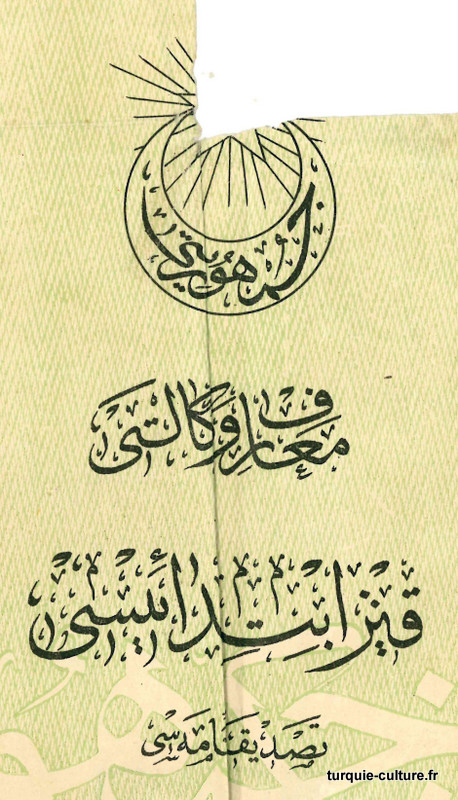 جمهوريتى
معارف وكالتى
قيز ابتدائيسى
تصديقنامه‌سى
turquie-culture.fr